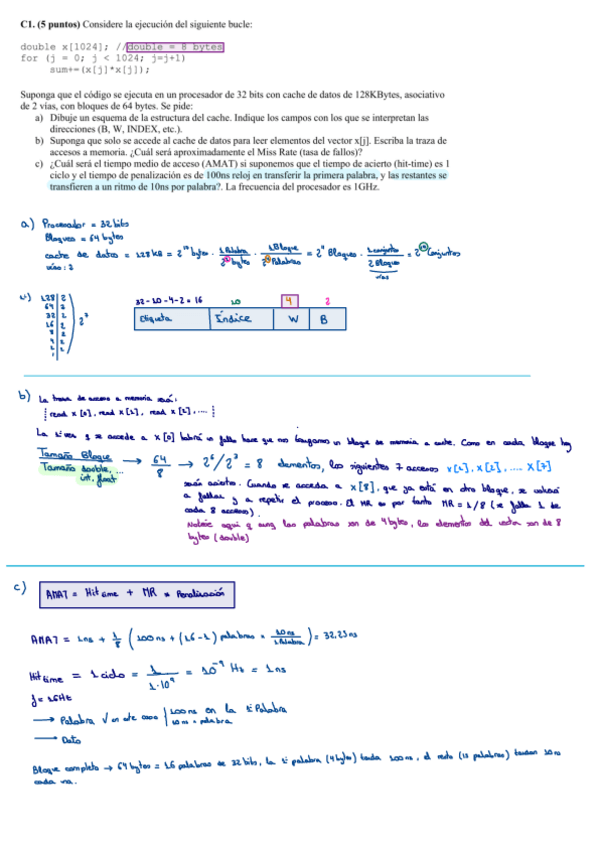 C1. (5 puntos) Considere la ejecución del siguiente bucle:
double x[1024]; //double = 8 bytes
for (j = 0; j < 1024; j=j+1)
sum+=(x[j]*x[j]);
Suponga que el código se ejecuta en un procesador de 32 bits con cache de datos de 128KBytes, asociativo
de 2 vías, con bloques de 64 bytes. Se pide:
a) Dibuje un esquema de la estructura del cache. Indique los campos con los que se interpretan las
direcciones (B, W, INDEX, etc.).
b) Suponga que solo se accede al cache de datos para leer elementos del vector x[j]. Escriba la traza de
accesos a memoria. ¿Cuál será aproximadamente el Miss Rate (tasa de fallos)?
c) ¿Cuál será el tiempo medio de acceso (AMAT) si suponemos que el tiempo de acierto (hit-time) es 1
ciclo y el tiempo de penalización es de 100ns reloj en transferir la primera palabra, y las restantes se
transfieren a un ritmo de 10ns por palabra?. La frecuencia del procesador es 1GHz.
a) Procesador = 32 bits
Bloques = 64 bytes
cache de datos = 128 KB = 2^17 bytes · 1 Palabra / 2^2 bytes · 1 Bloque / 2^4 Palabras = 2^11 Bloques · 1 conjunto / 2 Bloques = 2^10 Conjuntos
vías: 2
vías
128 2
64 2
32 2
16 2
8 2
4 2
2 2
1
2^7
32-10-4-2 = 16 10 4 2
Etiqueta Índice W B
b) La traza de acceso a memoria será:
read x [0], read x [1], read x [2], ....
La 1ª vez q se accede a x [0] habrá un fallo hace que nos traigamos un bloque de memoria a cache. Como en cada bloque hay
Tamaño Bloque / Tamaño double, int, float → 64/8 → 2^6/2^3 = 8 elementos, los siguientes 7 accesos x[1], x[2], .... x[7]
será acierto. Cuando se acceda a x[8], que ya está en otro bloque, se volverá
a fallar y a repetir el proceso. El MR es por tanto MR = 1/8 (se falla 1 de
cada 8 accesos).
Notese aquí q aunq las palabras son de 4 bytes, los elementos del vector son de 8
bytes (double)
c) AMAT = Hit time + MR * Penalización
AMAT = 1ns + 1/8 (100ns + (16-1) palabras * 10ns / 1 Palabra) = 32,25ns
Hit time = 1 ciclo = 1 / 1·10^9 = 10^-9 Hz = 1ns
f = 1GHz
→ Palabra √ en este caso | 100ns en la 1ª Palabra
10ns × palabra
→ Dato
Bloque completo → 64 bytes = 16 palabras de 32 bits, la 1ª palabra (4 bytes) tarda 100ns, el resto (15 palabras) tardan 10ns
cada una.